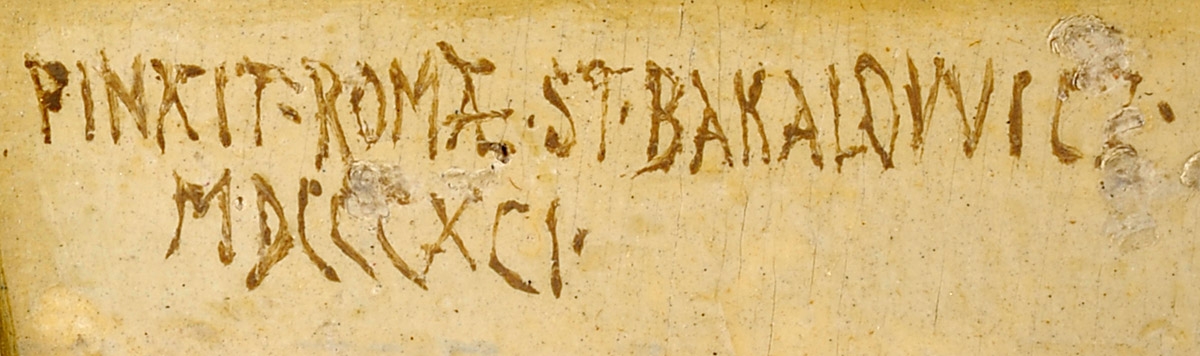 PINXIT·ROMÆ·ST·BAKALOWICZ·
MDCCCXCI·